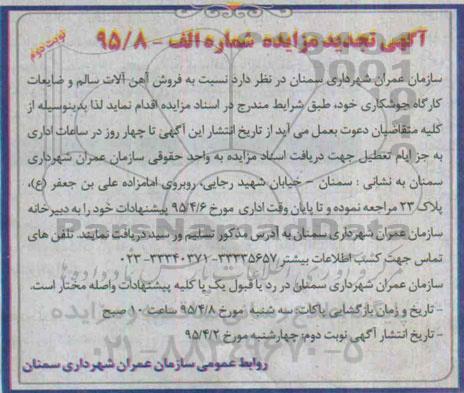 آگهی تجدید مزایده شماره الف - ۹۵/۸
نوبت دوم
سازمان عمران شهرداری سمنان در نظر دارد نسبت به فروش آهن آلات سالم و ضایعات
کارگاه جوشکاری خود، طبق شرایط مندرج در اسناد مزایده اقدام نماید لذا بدینوسیله از
کلیه متقاضیان دعوت بعمل می آید از تاریخ انتشار این آگهی تا چهار روز در ساعات اداری
به جز ایام تعطیل جهت دریافت اسناد مزایده به واحد حقوقی سازمان عمران شهرداری
سمنان به نشانی : سمنان - خیابان شهید رجایی، روبروی امامزاده علی بن جعفر (ع)،
پلاک ۲۳ مراجعه نموده و تا پایان وقت اداری مورخ ۹۵/۴/۶ پیشنهادات خود را به دبیرخانه
سازمان عمران شهرداری سمنان به آدرس مذکور تسلیم و رسید دریافت نمایند. تلفن های
تماس جهت کسب اطلاعات بیشتر ۳۳۳۳۵۶۵۷-۳۳۳۴۰۳۷۱-۰۲۳
سازمان عمران شهرداری سمنان در رد یا قبول یک یا کلیه پیشنهادات واصله مختار است.
- تاریخ و زمان بازگشایی پاکات: سه شنبه مورخ ۹۵/۴/۸ ساعت ۱۰ صبح
- تاریخ انتشار آگهی نوبت دوم: چهارشنبه مورخ ۹۵/۴/۲
روابط عمومی سازمان عمران شهرداری سمنان
ParsNamadData
۰۲۱-۸۸۳۴۹۶۷۰-۵